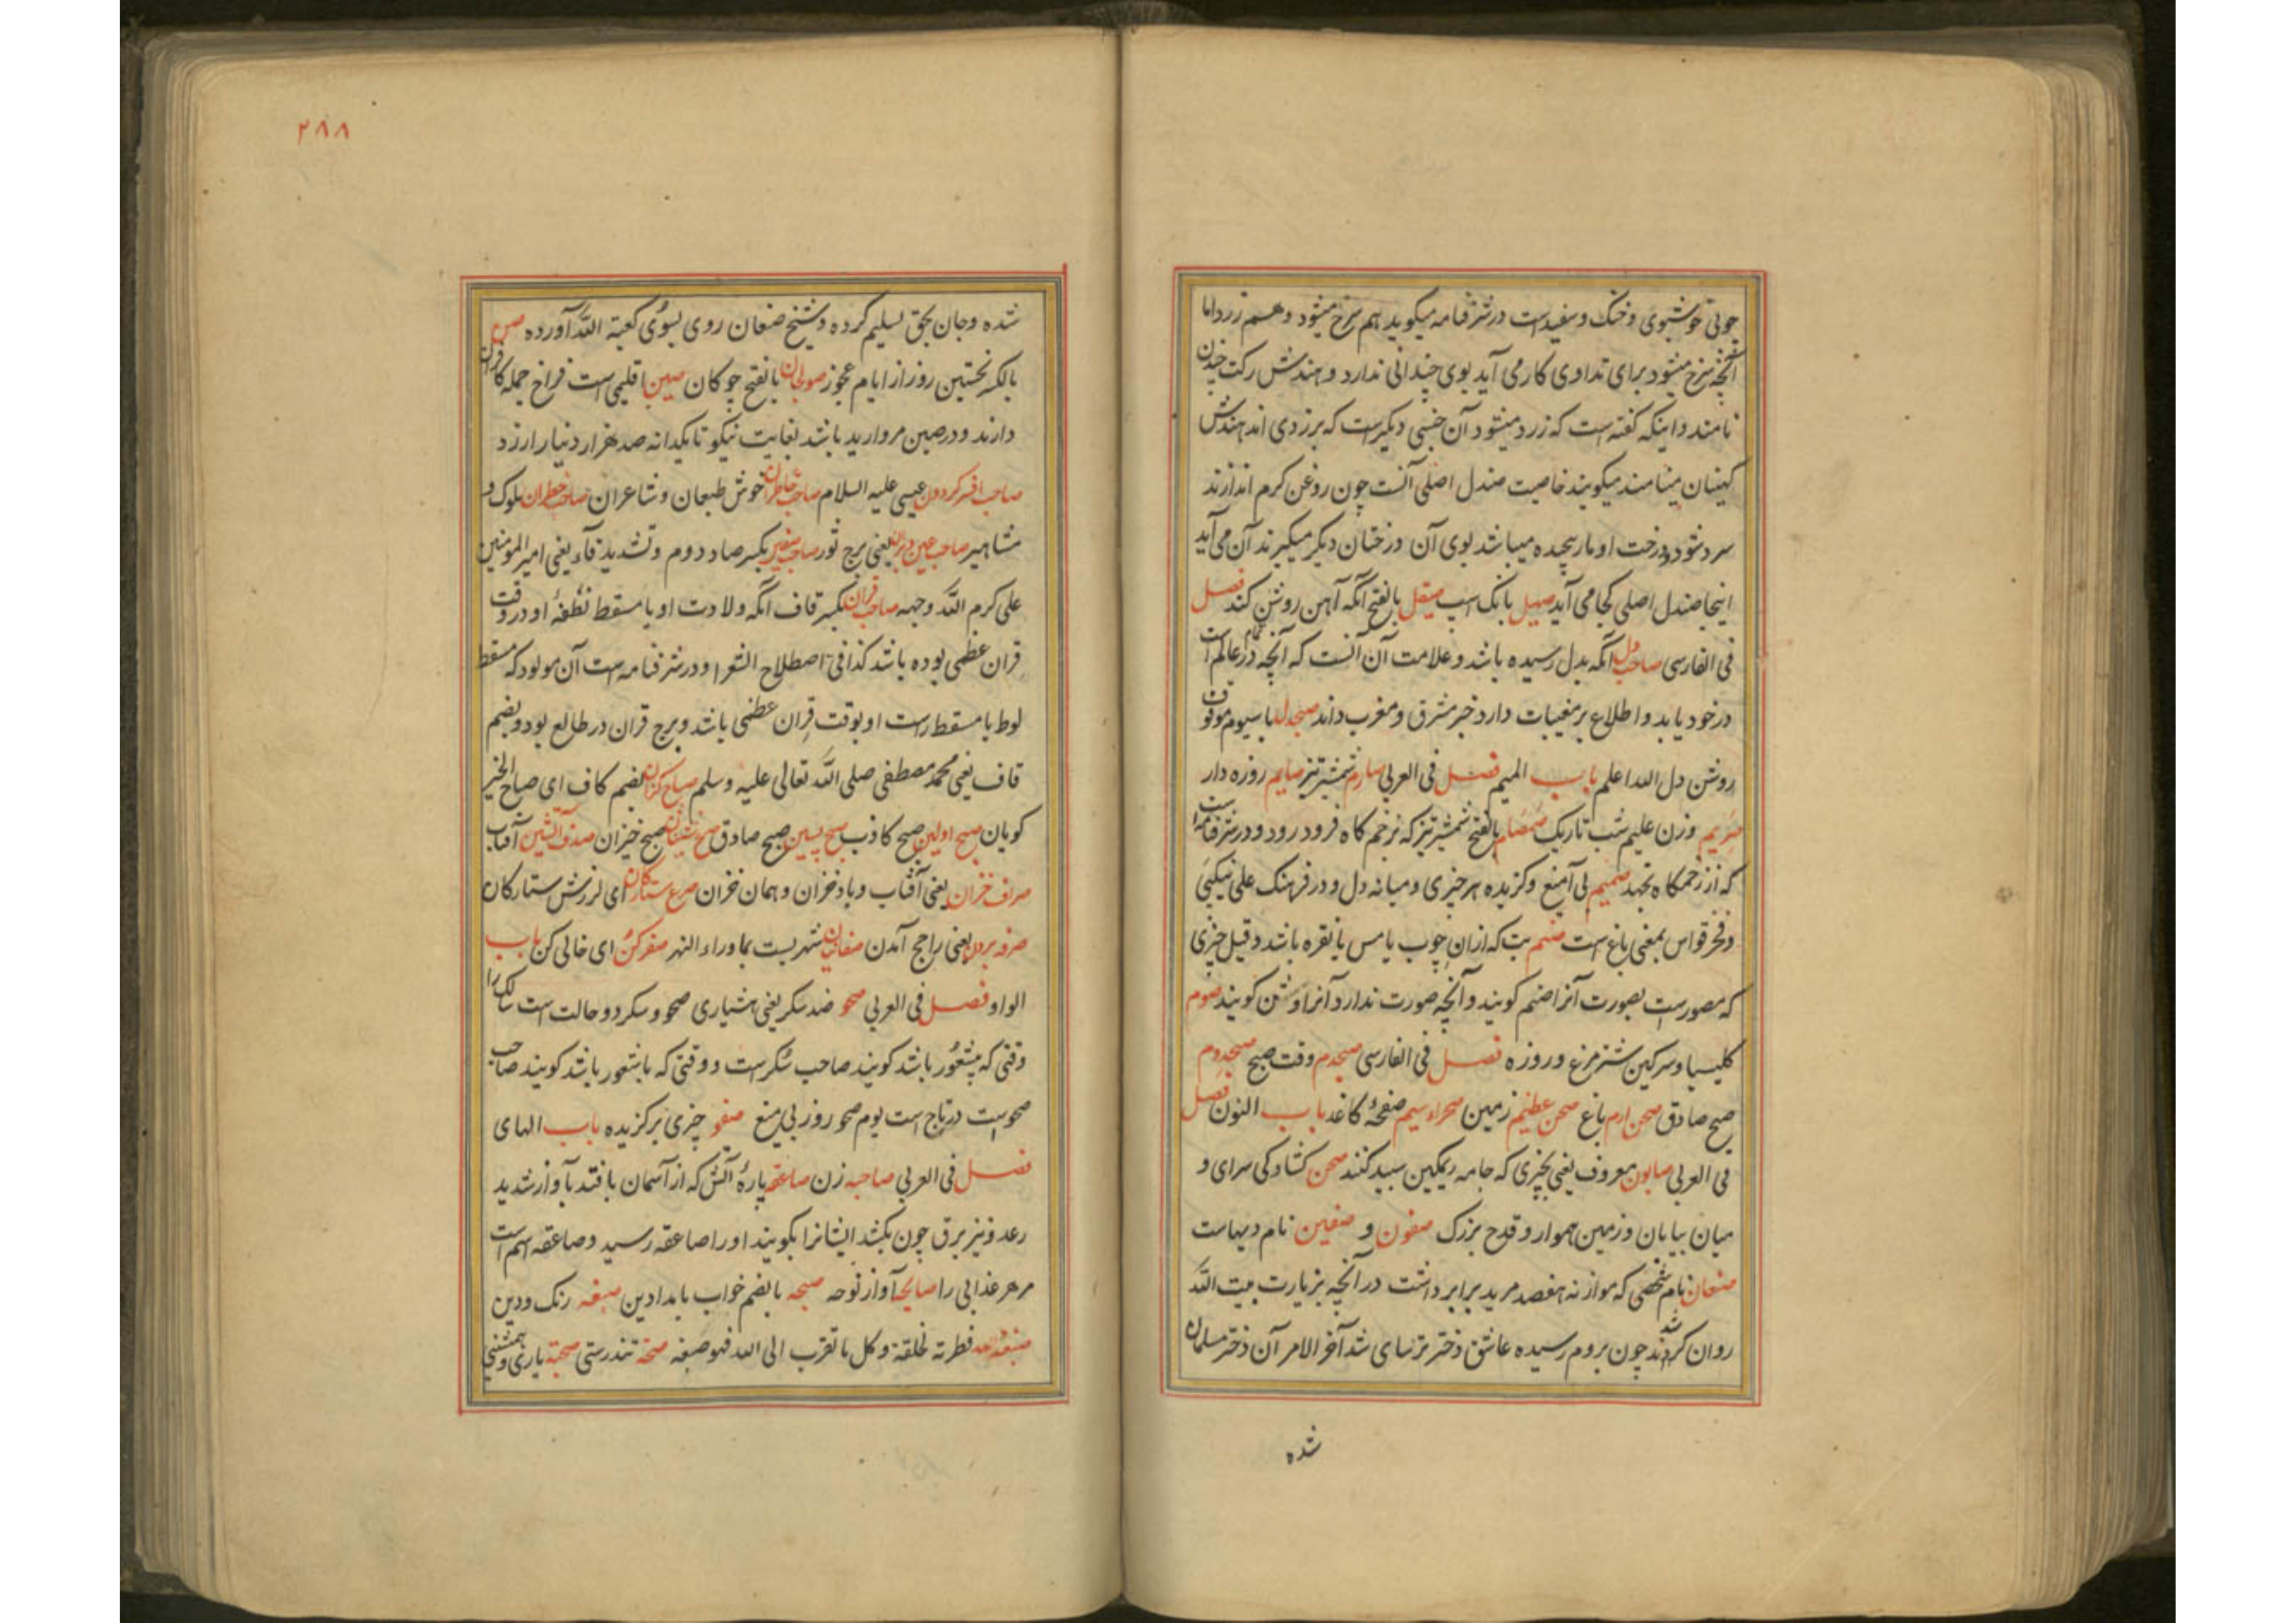 چوبی خوشبوی و خنک و سفیدست در شرفنامه میکوید هم سرخ میشود و هم زرد اما
آنچه سرخ میشود برای تداوی کار می آید بوی چندانی ندارد و هندش رکت چندن
نامند و اینکه کفته است که زرد میشود آن جنسی دیکرست که بزردی اند هندش
مینامند میکویند خاصیت صندل اصلی آنست چون روغن کرم اندازند
سرد شود و درخت او مار پیچیده میباشد بوی آن درختان دیکر میکیرند آن می آید
اینجا صندل اصلی کجا می آید صهیل بانک اسپ صیقل بالفتح آنکه آهن روشن کند فصل
فی الفارسی صاحب دل آنکه بدل رسیده باشد و علامت آن آنست که آنچه در تمام عالم است
در خود یابد و اطلاع بر مغیبات دارد خبر مشرق و مغرب داند صبحدل با سیوم موقوف
روشن دل الله اعلم باب المیم فصل فی العربی صارم شمشیر تیز صایم روزه دار
صریم وزن علیم شب تاریک صمصام بالفتح شمشیر تیز که بزخم کاه فرود رود و در شرفنامه است
که از زخمکاه نجهد صمیم بی آمیغ و کزیده هر چیزی و میانه دل و در فرهنک علی نیکبی
و فخر قواس بمعنی باغ است صنم بت که از ان چوب یا مس یا نقره باشد و قیل چیزی
که مصورست بصورت آنرا صنم کویند و آنچه صورت ندارد آنرا وثن کویند صوم
کلیسیا و سرکین شترمرغ و روزه فصل فی الفارسی صبحدم وقت صبح صبح دوم
صبح صادق صحن ارم باغ صحن عظیم زمین صحراء سیم صفحهٔ کاغد باب النون فصل
فی العربی صابون معروف یعنی چیزی که جامه ریمکین سپید کنند صحن کشادکی سرای و
میان بیابان و زمین هموار و قدح بزرک صفون و صفین نام دیهاست
صنعان نام شخصی که موازنه هفصد مرید برابر داشت در آنچه بزیارت بیت الله
روان کردند شد چون بروم رسیده عاشق دختر ترسای شد آخر الامر آن دختر مسلمان
شده
۲۸۸
شده و جان بحق تسلیم کرده و شیخ صنعان روی بسوی کعبة الله آورده صن
بالکسر نخستین روز از ایام عجوز صولجان بالفتح چوکان صین اقلیمی است فراخ جمله کافران
دارند و در صین مروارید باشد بغایت نیکو تا یکدانه صد هزار دینار ارزد
صاحب افسر کردون عیسی علیه السلام صاحب خاطران خوش طبعان و شاعران صاحب خطران ملوک و
مشاهیر صاحب عین یعنی برج ثور صاحب صفین بکسر صاد دوم و تشدید فاء یعنی امیر المؤمنین
علی کرم الله وجهه صاحب قران بکسر قاف آنکه ولادت او یا مسقط نطفهٔ او در وقت
قران عظمی بوده باشد کذا فی اصطلاح الشعرا و در شرفنامه است آن مولود که مسقط
لوط یا مسقط راست او بوقت قران عظمی باشد و برج قران در طالع بود و بضم
قاف یعنی محمد مصطفی صلی الله تعالی علیه وسلم صباح کنان بضم کاف ای صباح الخیر
کویان صبح اولین صبح کاذب صبح پسین صبح صادق صبح نشینان صبح خیزان صدف آتشین آفتاب
صراف خزان یعنی آفتاب و باد خزان و همان خزان صرع ستارکان ای لرزش ستارکان
صرفه بردن یعنی راجح آمدن صفانیان شهریست بماوراء النهر صفر کن ای خالی کن باب
الواو فصل فی العربی صحو ضد سکر یعنی هشیاری صحو و سکر دو حالت است سالک را
وقتی که بیشعور باشد کویند صاحب سکرست و وقتی که باشعور باشد کویند صاحب
صحوست در تاج است یوم صحو روز بی میغ صفو چیزی برکزیده باب الهای
فصل فی العربی صاحبه زن صاعقه پارهٔ آتش که از آسمان بافتد بآواز شدید
رعد و نیز برق چون بکشد ایشانرا بکویند او را صاعقه رسید و صاعقه اسم است
مر هر عذابی را صایحه آواز نوحه صبحه بالضم خواب بامدادین صبغه رنک و دین
صبغة الله فطرته لخلقة و کل ما تقرب الی الله فهو صبغه صحة تندرستی صحبة یاری و همنشینی